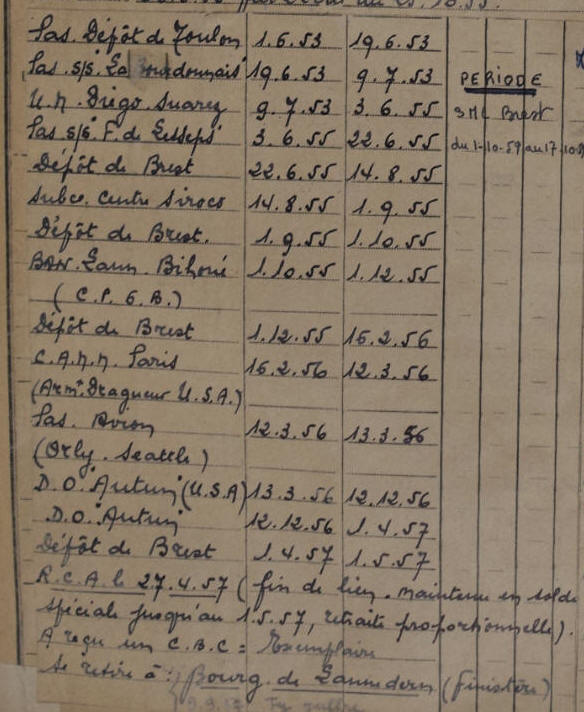 Pas. Dépôt de Toulon 1.6.53 19.6.53
Pas. s/s "La Bourdonnais" 19.6.53 9.7.53 PERIODE
U.M. Diégo. Suarez 9.7.53 3.6.55 SML Brest
Pas. s/s "F. de Lesseps" 3.6.55 22.6.55 du 1-10-59 au 17.10.59
Dépôt de Brest 22.6.55 14.8.55
Subce. Centre Siroco 14.8.55 1.9.55
Dépôt de Brest. 1.9.55 1.10.55
BAN. Lann. Bihoué 1.10.55 1.12.55
(C.P. 6.B.)
Dépôt de Brest 1.12.55 16.2.56
C.A.M.M. Paris 16.2.56 12.3.56
(Armt. Dragueur U.S.A.)
Pas. Avion 12.3.56 13.3.56
(Orly. Seattle)
D.O. "Autun" (U.S.A) 13.3.56 12.12.56
D.O. "Autun" 12.12.56 1.4.57
Dépôt de Brest 1.4.57 1.5.57
R.C.A. le 27.4.57 (fin de lien. maintenu en solde
spéciale jusqu'au 1.5.57, retraite proportionnelle).
A reçu un C.B.C = Exemplaire
Se retire à: Bourg. de Lannedern (Finistère)